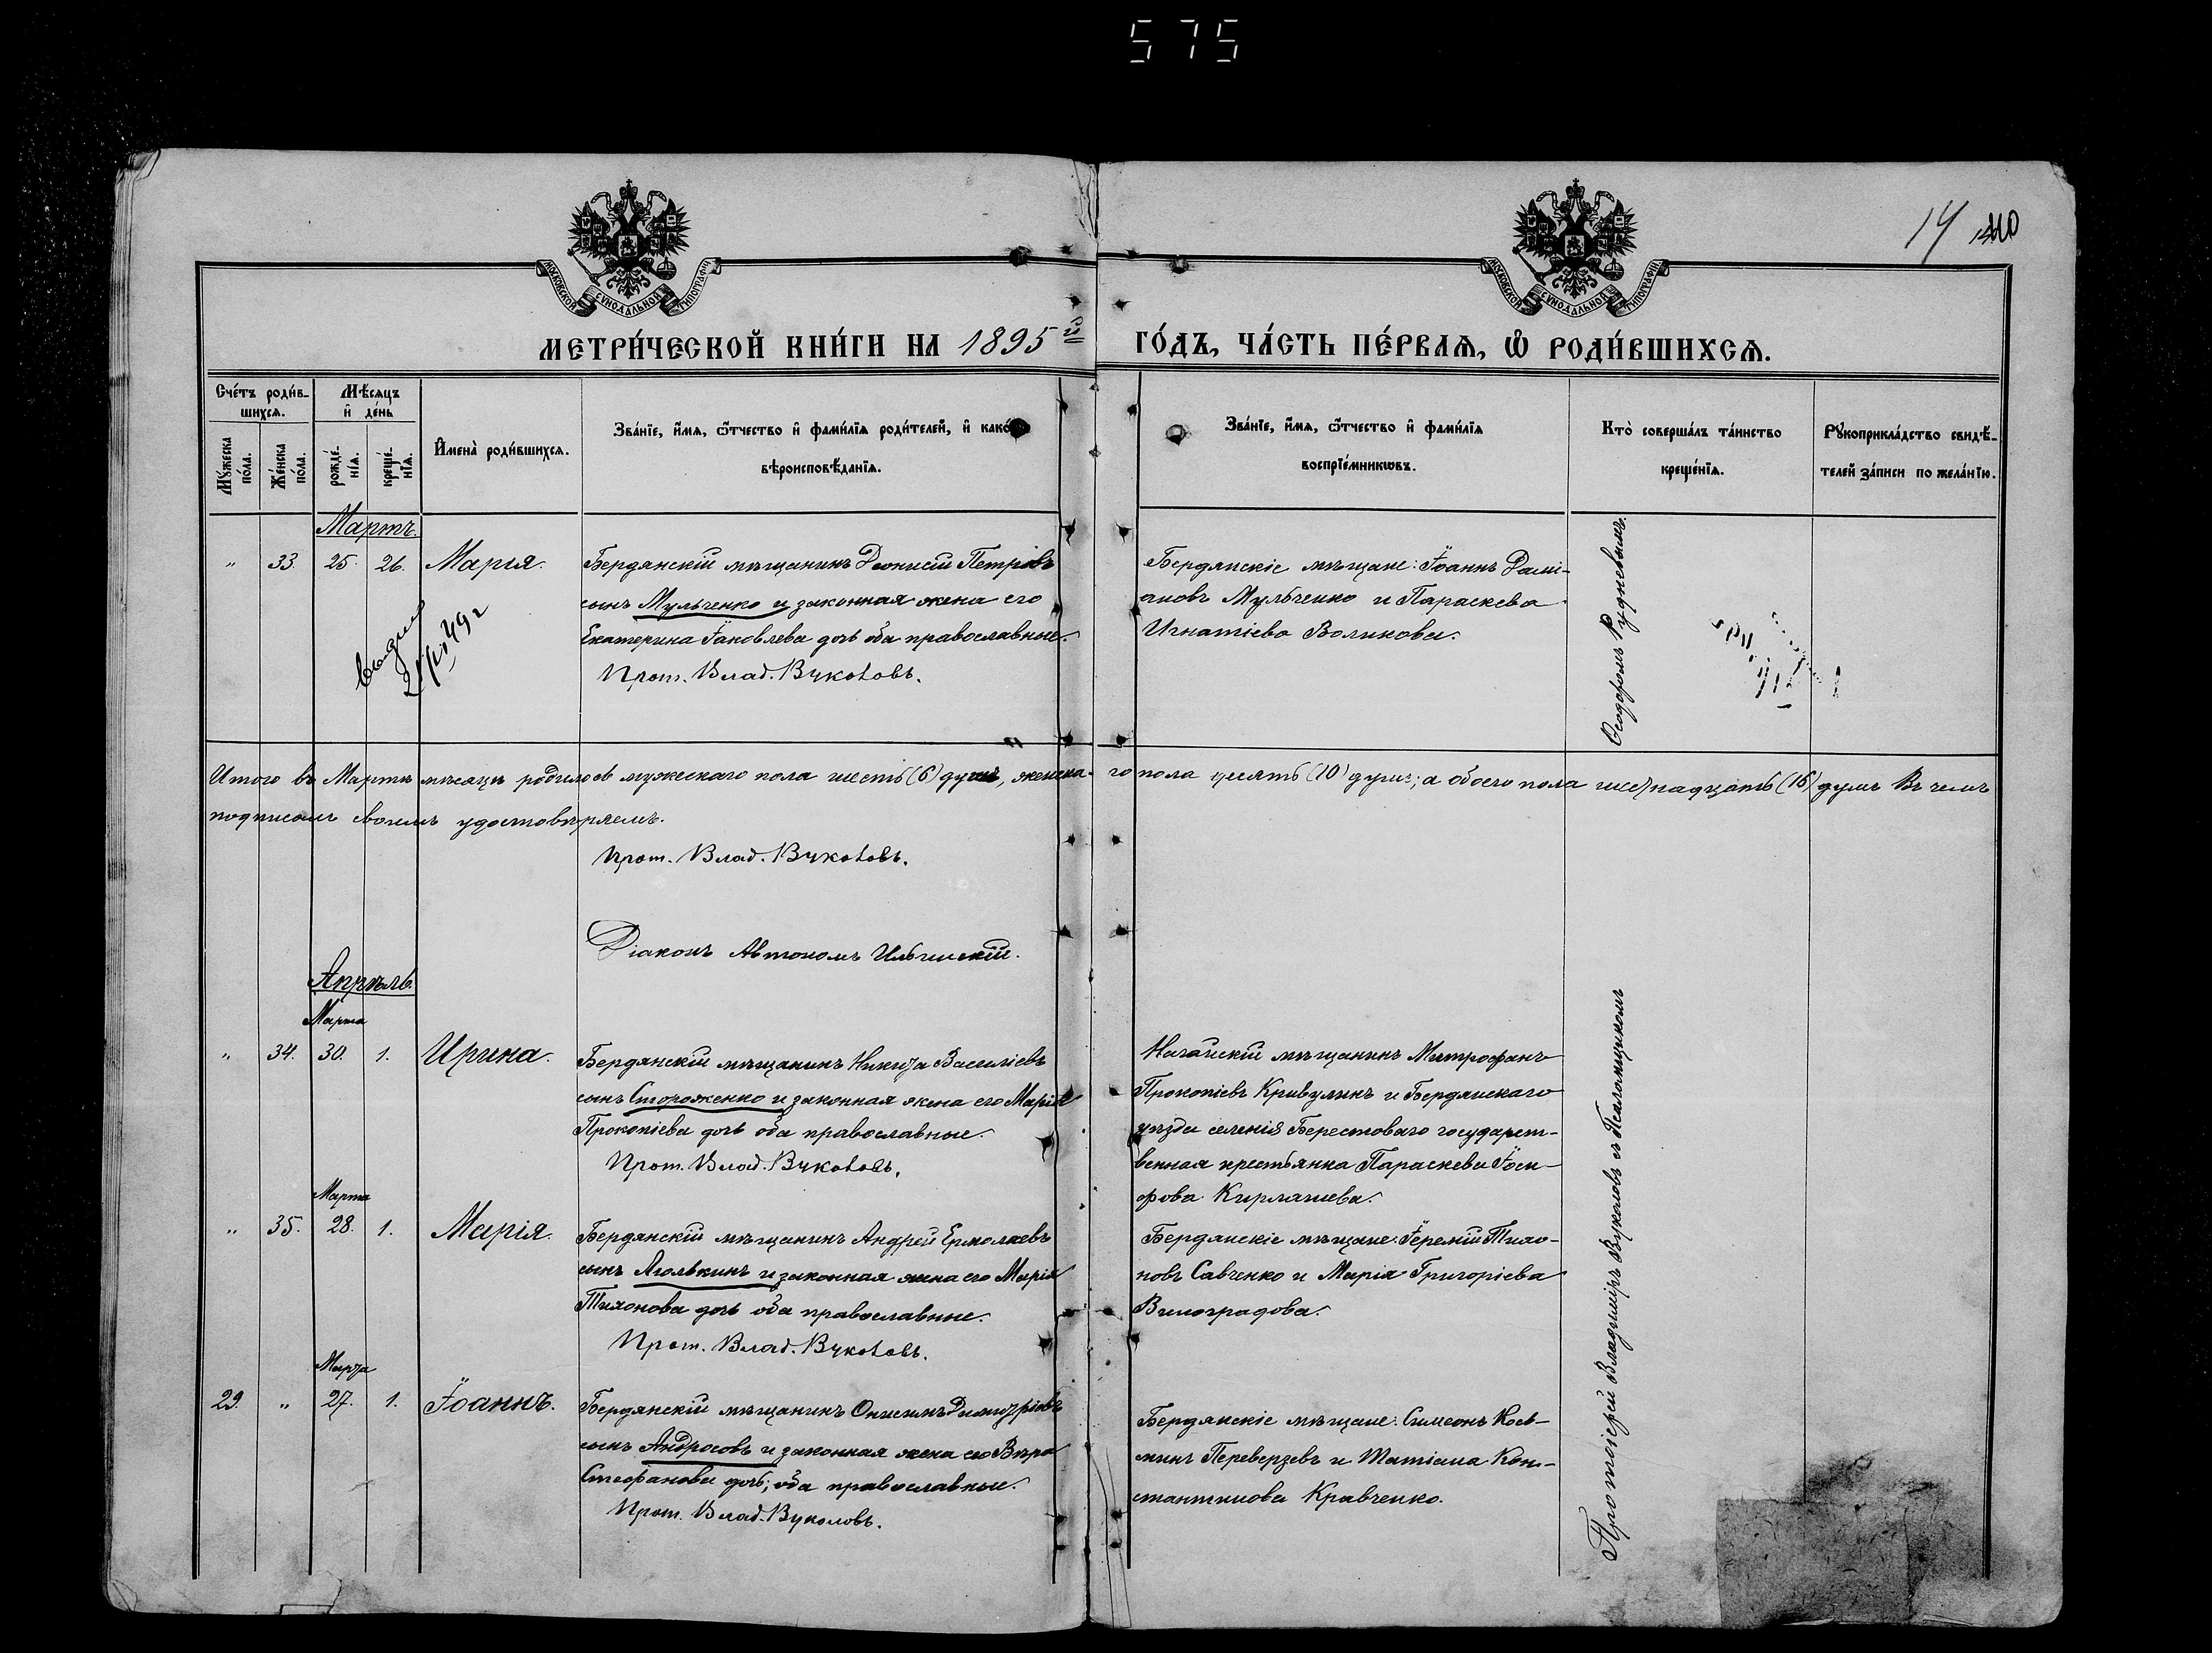 575
14
МОСКОВСКОЙ СѴНОДАЛЬНОЙ ТИПОГРАФІИ
МОСКОВСКОЙ СѴНОДАЛЬНОЙ ТИПОГРАФІИ
МЕТРИ́ЧЕСКОЙ КНИ́ГИ НА 1895й ГО́ДЪ, ЧА́СТЬ ПЕ́РВАѦ, Ѡ҆ РОДИ́ВШИХСѦ.
Сче́тъ роди́в-
шихсѧ.
Мѣ́сѧцъ
и҆ де́нь
Мꙋ́жеска
по́ла.
Же́нска
по́ла.
рожде́-
нїѧ.
креще́-
нїѧ.
И҆мена̀ роди́вшихсѧ.
Зва́нїе, и҆́мѧ, ѻ҆́тчество и҆ фами́лїѧ роди́телей, и҆ како́гѡ
вѣроисповѣ́данїѧ.
Зва́нїе, и҆́мѧ, ѻ҆́тчество и҆ фами́лїѧ
воспрїе́мникѡвъ.
Кто̀ соверша́лъ та́инство
креще́нїѧ.
Рꙋкоприкла́дство свидѣ́-
телей за́писи по жела́нїю.
Мартъ.
" 33. 25. 26. Марія.
Бердянскій мѣщанинъ Діонисій Петровъ
сынъ Мульченко и законная жена его
Екатерина Іаковлева дочь оба православные.
Прот. Влад. Вуколовъ.
Бердянскіе мѣщане: Іоаннъ Дамі-
ановъ Мульченко и Параскева
Игнатіева Воликова.
Ѳеодоромъ Рудневымъ.
49г
Итого въ Мартѣ мѣсяцѣ родилось мужескаго пола шесть (6) душъ, женска-го пола десять (10) душъ; а обоего пола шестнадцать (16) душъ. Въ чемъ
подписомъ своимъ удостовѣряемъ.
Прот. Влад. Вуколовъ.
Діаконъ Автономъ Ильинскій.
Апрѣль.
Марта
" 34. 30. 1. Ирина.
Бердянскій мѣщанинъ Никита Василіевъ
сынъ Стороженко и законная жена его Марія
Прокопіева дочь оба православные.
Прот. Влад. Вуколовъ.
Ногайскій мѣщанинъ Митрофанъ
Прокопіевъ Кривулинъ и Бердянскаго
уѣзда селенія Берестоваго государст-
венная крестьянка Параскева Іоси-
фова
Марта
" 35. 28. 1. Марія.
Бердянскій мѣщанинъ Андрей Ермолаевъ
сынъ Яголькинъ и законная жена его Марія
Тихонова дочь оба православные.
Прот. Влад. Вуколовъ.
Бердянскіе мѣщане: Іеремій Тихо-
новъ Савченко и Марія Григоріева
Виноградова.
Марта
29. " 27. 1. Іоаннъ.
Бердянскій мѣщанинъ Онисимъ Димитріевъ
сынъ Андросовъ и законная жена его Вѣра
Стефанова дочь; оба православные.
Прот. Влад. Вуколовъ.
Бердянскіе мѣщане: Симеонъ Косъ-
минъ Переверзевъ и Татіана Кон-
стантинова Кравченко.
Протоіерей Владиміръ Вуколовъ съ Псаломщикомъ